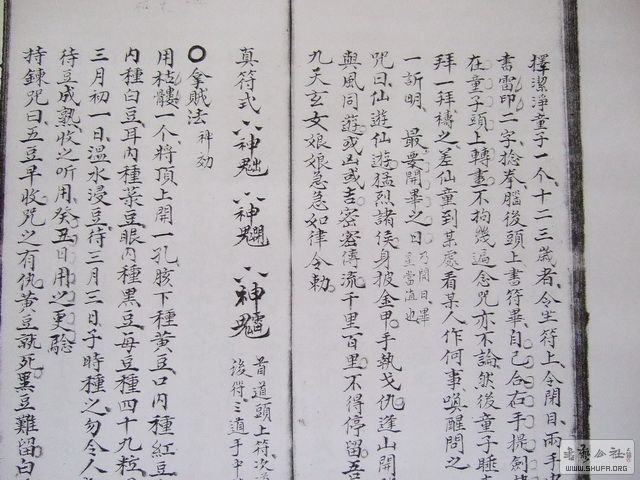 擇潔淨童子一个、十二三歲者、令坐符上、令閉目、兩手
書雷印二字、捻拳、腦後頭上書符畢、自己合右手提劍
在童子頭上轉畫、不拘幾遍、念咒亦不論、然後童子睡
拜一拜禱之、差仙童到某處看某人作何事、喚醒問之
一訢明、最要開畢之日乃開日畢宜當值也
咒曰、仙遊仙遊、猛烈諸侯、身披金甲、手執戈仇、逢山開
與風同遊、或凶或吉、密密傳流、千里百里、不得停留、吾
九天玄女娘娘急急如律令勅
真符式 首道頭上符、次道 後得三道手中
拿賊法 神効
用枯髏一个、將頂上開一孔、胲下種黃豆、口內種紅豆
內種白豆、耳內種菜豆、眼內種黑豆、每豆種四十九粒
三月初一日、溫水浸豆、待三月三日子時種之、勿令人
待豆成熟收之听用、癸丑日用之更驗
持鍊咒曰、五豆早收、咒之有仇、黃豆就死、黑豆難留、白
書法公社
WWW.SHUFA.ORG